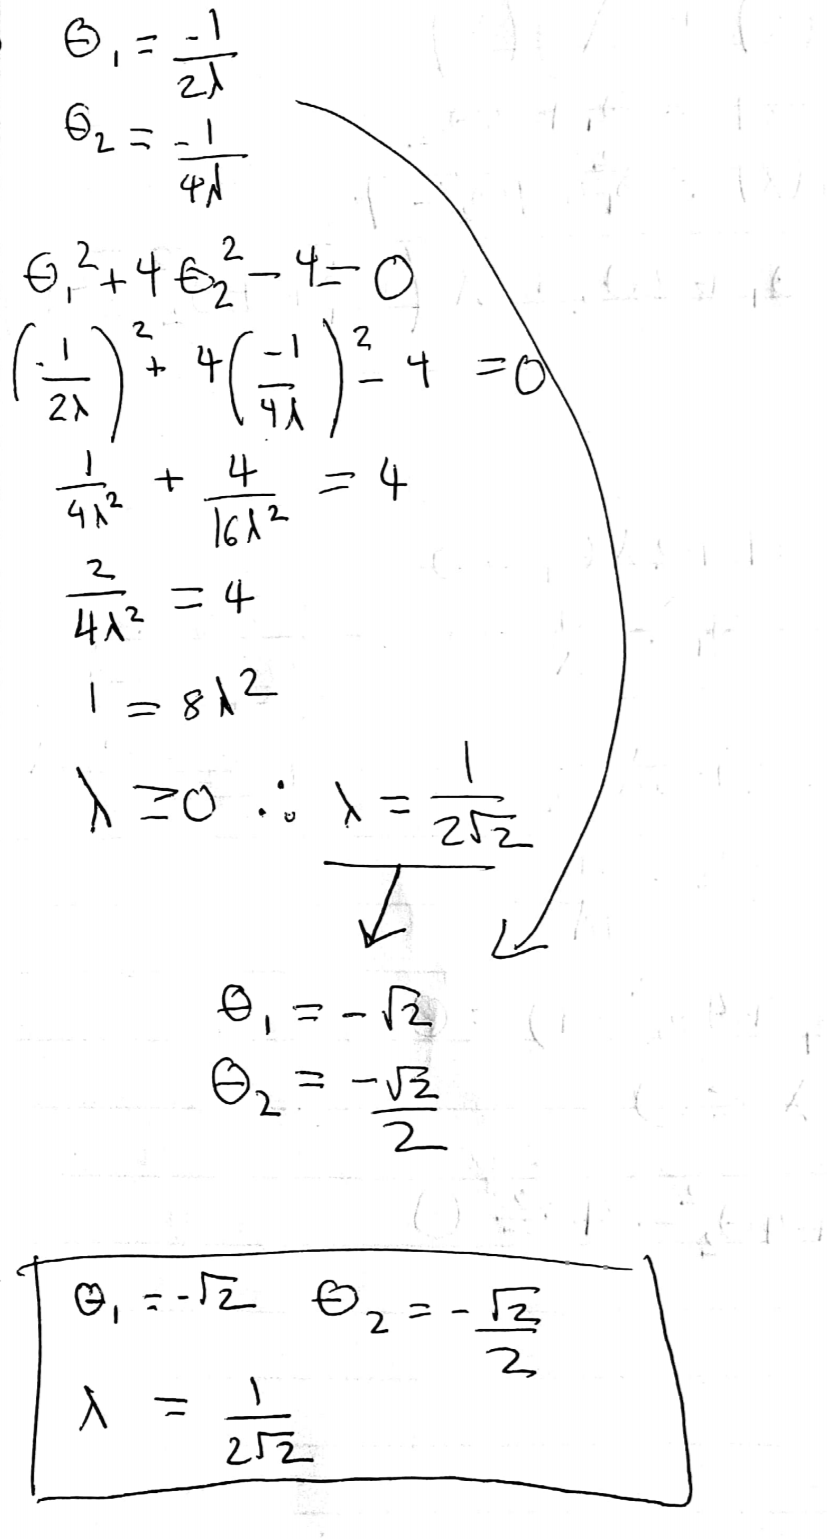 θ₁ = -1/2λ
θ₂ = -1/4λ
θ₁² + 4θ₂² - 4 = 0
(-1/2λ)² + 4(-1/4λ)² - 4 = 0
1/4λ² + 4/16λ² = 4
2/4λ² = 4
1 = 8λ²
λ ≥ 0 ∴ λ = 1/2√2
θ₁ = -√2
θ₂ = -√2/2
θ₁ = -√2 θ₂ = -√2/2
λ = 1/2√2